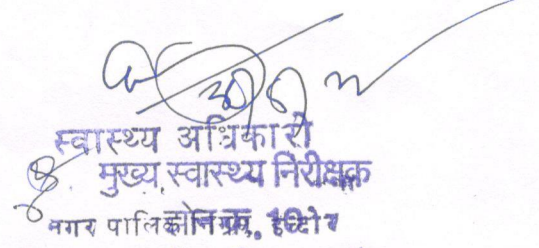 स्वास्थ्य अधिकारी
मुख्य स्वास्थ्य निरीक्षक
नगर पालिक निगम, इन्दौर
झोन क्र. 10